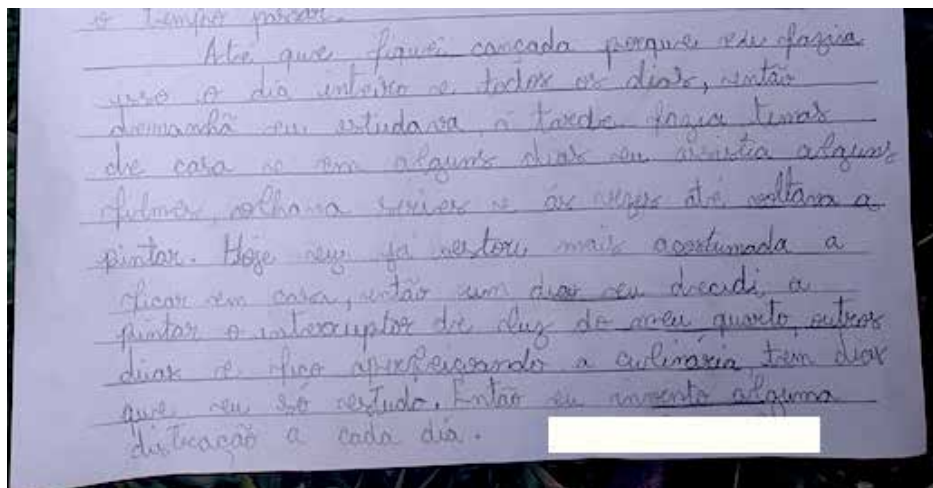 o tempo passar.
Até que fiquei cançada porque eu fazia
isso o dia inteiro e todos os dias, então
demanhã eu estudava, a tarde fazia temas
de casa e em alguns dias eu assistia alguns
filmes, olhava séries e ás vezes até voltava a
pintar. Hoje eu já estou mais acostumada a
ficar em casa, então um dia eu decidi a
pintar o interruptor de luz do meu quarto, outros
dias e fico aperfeiçoando a culinária, tem dias
que eu só estudo. Então eu invento alguma
distração a cada dia.